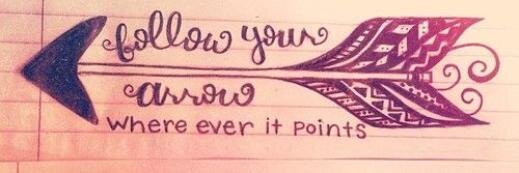 follow your
arrow
where ever it points